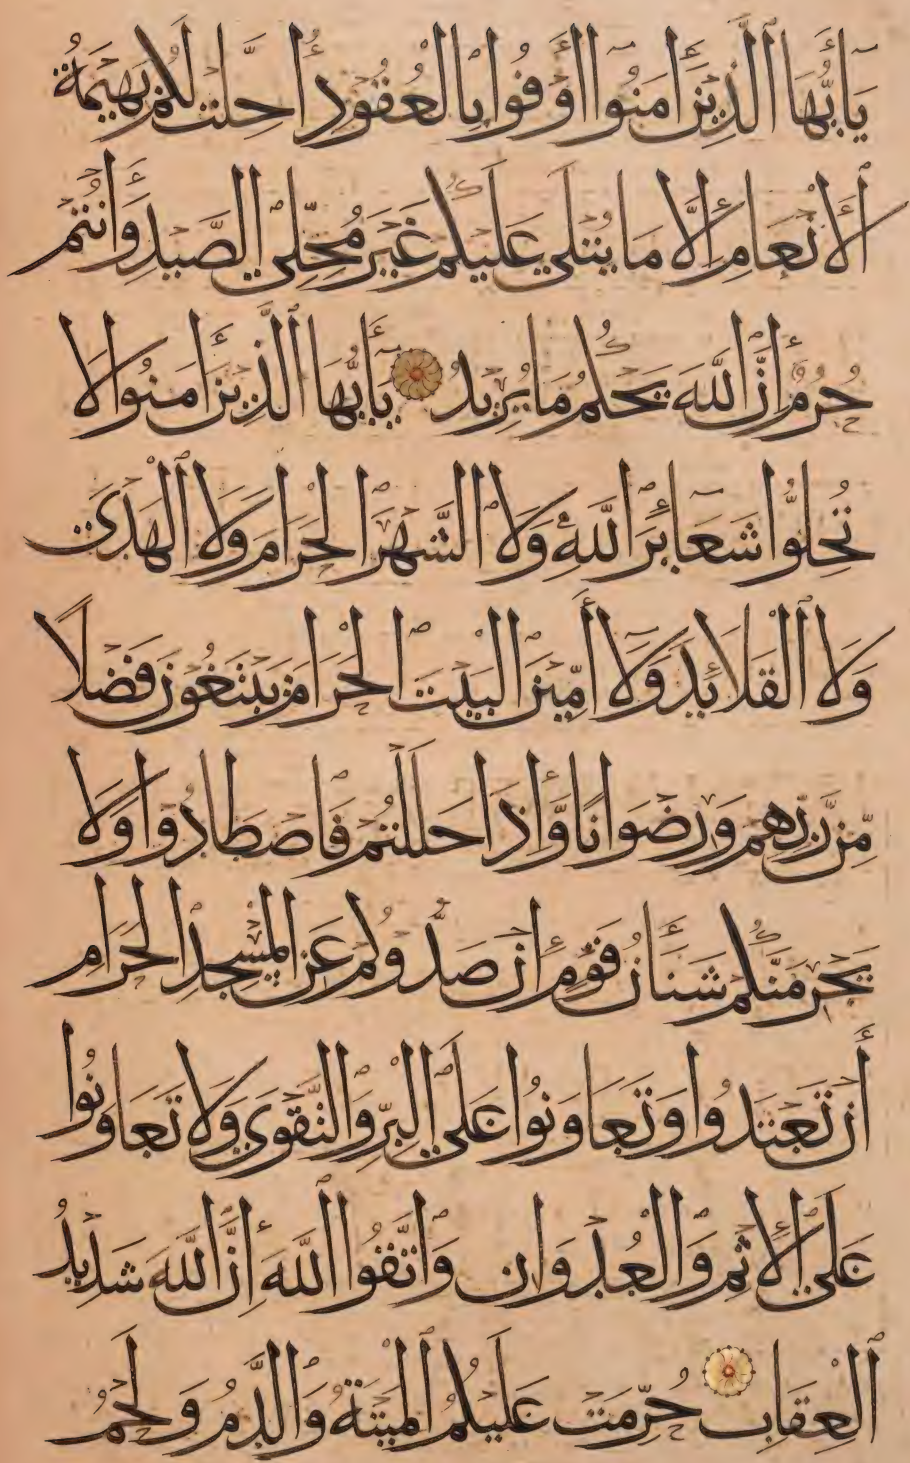 يَا أَيُّهَا الَّذِينَ آمَنُوا أَوْفُوا بِالْعُقُودِ أُحِلَّتْ لَكُمْ بَهِيمَةُ
الْأَنْعَامِ إِلَّا مَا يُتْلَىٰ عَلَيْكُمْ غَيْرَ مُحِلِّي الصَّيْدِ وَأَنْتُمْ
حُرُمٌ إِنَّ اللَّهَ يَحْكُمُ مَا يُرِيدُ يَا أَيُّهَا الَّذِينَ آمَنُوا لَا
تُحِلُّوا شَعَائِرَ اللَّهِ وَلَا الشَّهْرَ الْحَرَامَ وَلَا الْهَدْيَ
وَلَا الْقَلَائِدَ وَلَا آمِّينَ الْبَيْتَ الْحَرَامَ يَبْتَغُونَ فَضْلًا
مِنْ رَبِّهِمْ وَرِضْوَانًا وَإِذَا حَلَلْتُمْ فَاصْطَادُوا وَلَا
يَجْرِمَنَّكُمْ شَنَآنُ قَوْمٍ أَنْ صَدُّوكُمْ عَنِ الْمَسْجِدِ الْحَرَامِ
أَنْ تَعْتَدُوا وَتَعَاوَنُوا عَلَى الْبِرِّ وَالتَّقْوَىٰ وَلَا تَعَاوَنُوا
عَلَى الْإِثْمِ وَالْعُدْوَانِ وَاتَّقُوا اللَّهَ إِنَّ اللَّهَ شَدِيدُ
الْعِقَابِ حُرِّمَتْ عَلَيْكُمُ الْمَيْتَةُ وَالدَّمُ وَلَحْمُ